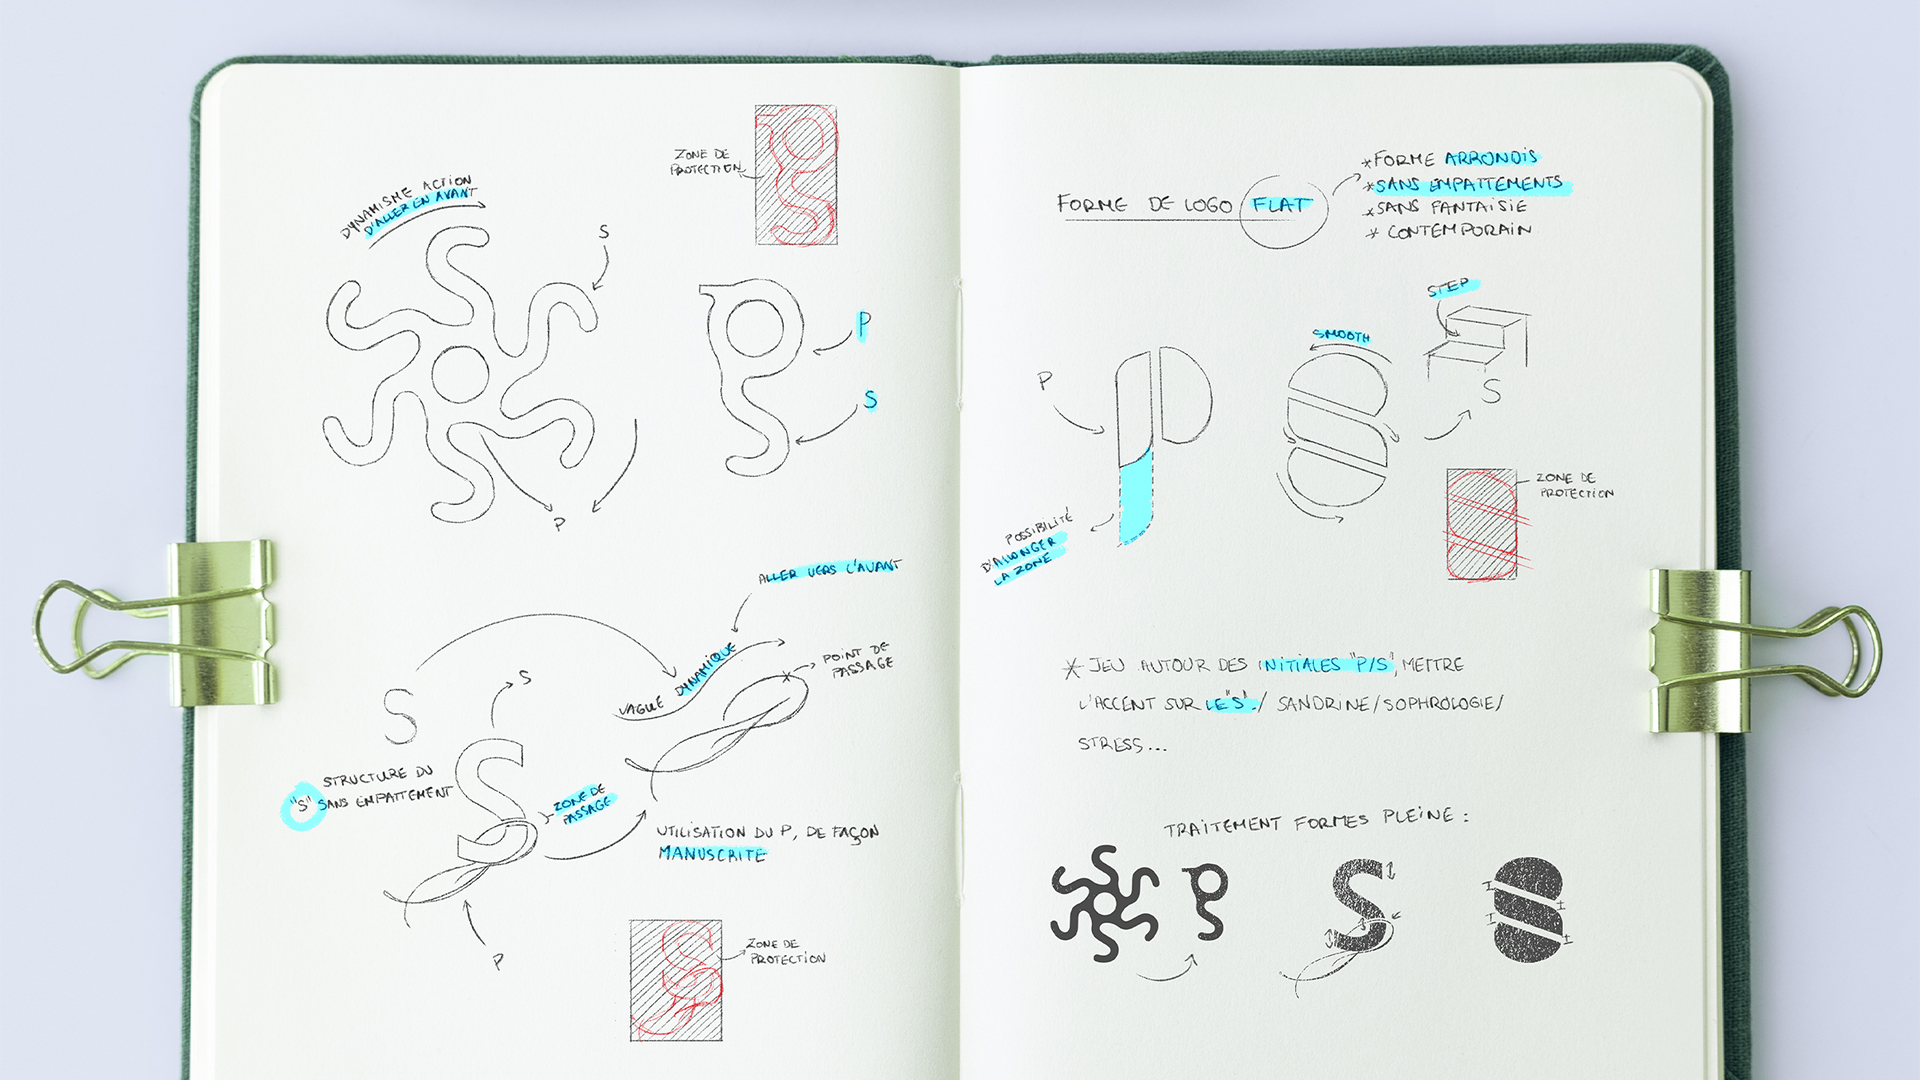 DYNAMISME ACTION
D'ALLER EN AVANT
S
P
ZONE DE
PROTECTION
P
S
ALLER VERS L'AVANT
VAGUE DYNAMIQUE
POINT DE
PASSAGE
S
S
STRUCTURE DU
"S" SANS EMPATTEMENT
ZONE DE
PASSAGE
UTILISATION DU P, DE FAÇON
MANUSCRITE
P
ZONE DE
PROTECTION
FORME DE LOGO FLAT
*FORME ARRONDIS
*SANS EMPATTEMENTS
*SANS FANTAISIE
* CONTEMPORAIN
STEP
SMOOTH
P
S
POSSIBILITÉ
D'ALLONGER
LA ZONE
ZONE DE
PROTECTION
* JEU AUTOUR DES INITIALES "P/S", METTRE
L'ACCENT SUR LE "S"./ SANDRINE/SOPHROLOGIE/
STRESS...
TRAITEMENT FORMES PLEINE :